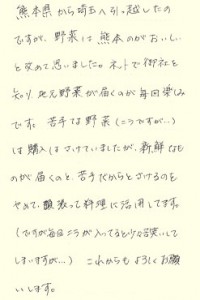 熊本県から埼玉へ引っ越したの
ですが、野菜は熊本のがおいし
いと改めて思いました。ネットで御社を
知り、地元野菜が届くのが毎回楽しみ
です。苦手な野菜(ニラですが…)
は購入はさけていましたが、新鮮なも
のが届くのと、苦手だからとさけるのを
やめて、頑張って料理に活用してます。
(ですが毎回ニラが入ってると少々苦笑いして
しまいますが…) これからもよろしくお願
いします。